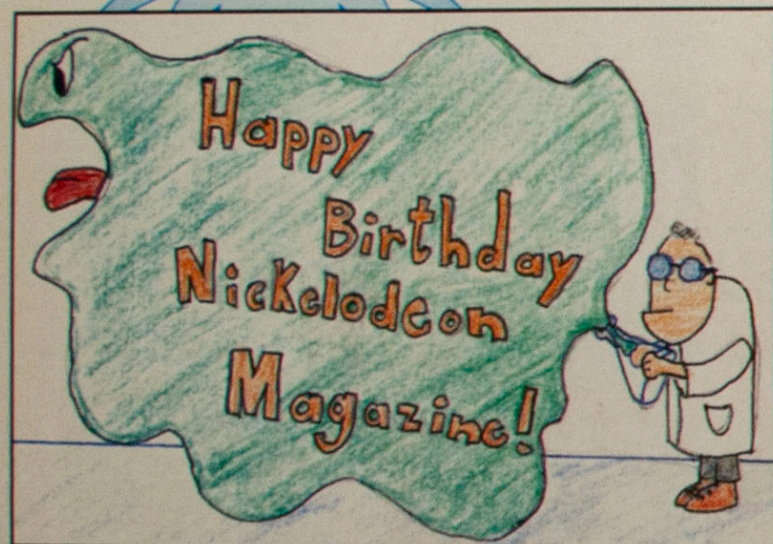 Happy
Birthday
Nickelodeon
Magazine!